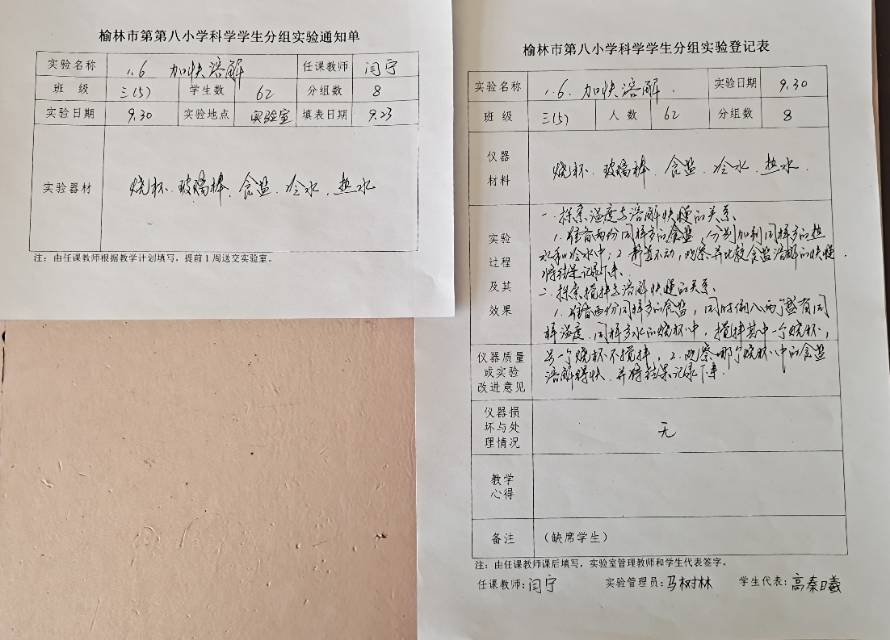 榆林市第第八小学科学学生分组实验通知单
实验名称 1.6 加快溶解 任课教师 闫宁
班级 三(5) 学生数 62 分组数 8
实验日期 9.30 实验地点 实验室 填表日期 9.23
实验器材 烧杯、玻璃棒、食盐、冷水、热水
注：由任课教师根据教学计划填写，提前1周送交实验室。
榆林市第第八小学科学学生分组实验登记表
实验名称 1.6.加快溶解. 实验日期 9.30
班级 三(5) 人数 62 分组数 8
仪器
材料
烧杯、玻璃棒、食盐、冷水、热水.
实验
过程
及其
效果
一、探索温度与溶解快慢的关系
1.准备两份同样多的食盐，分别加到同样多的热
水和冷水中；2.静置不动，观察并比较食盐溶解的快慢
将结果记录下来.
二、探索搅拌与溶解快慢的关系.
1.准备两份同样多的食盐，同时倒入两个盛有同
样温度、同样多水的烧杯中，搅拌其中一个烧杯，
另一个烧杯不搅拌，2.观察哪个烧杯中的食盐
溶解得快.并将结果记录下来.
仪器质量
或实验
改进意见
仪器损
坏与处
理情况
无
教学
心得
备注 （缺席学生）
注：由任课教师课后填写，实验室管理教师和学生代表签字。
任课教师：闫宁 实验管理员：马树林 学生代表：高秦曦